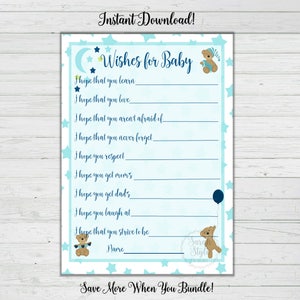 Instant Download!
Wishes for Baby
I hope that you learn
I hope that you love
I hope that you aren't afraid of
I hope that you never forget
I hope you respect
I hope you get mom's
I hope you get dad's
I hope you laugh at
I hope that you strive to be
Name
Save More When You Bundle!